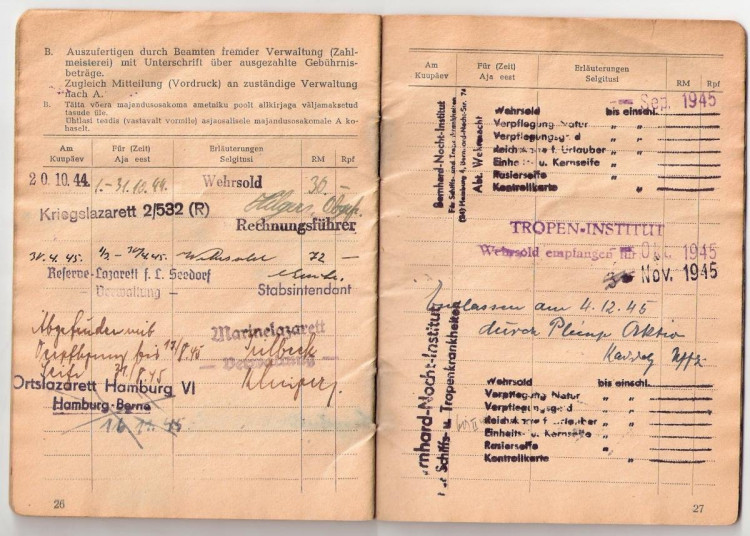 B. Auszufertigen durch Beamten fremder Verwaltung (Zahl-
meisterei) mit Unterschrift über ausgezahlte Gebührnis-
beträge.
Zugleich Mitteilung (Vordruck) an zuständige Verwaltung
nach A.
B. Täita võera majandusosakoma ametniku poolt allkirjaga väljamaksetud
tasude üle.
Ühtlasi teadis (vastavalt vormile) asjaosalisele majandusosakomale A ko-
haselt.
Am
Kuupäev
Für (Zeit)
Aja eest
Erläuterungen
Selgitusi
RM
Rpf
20.10.44 1.-31.10.44. Wehrsold 30.-
Kriegslazarett 2/532 (R)
Rechnungsführer
30.4.45. 1/2 - 30/4.45. Wehrsold 72 -
Reserve-Lazarett f. L. Seedorf
- Verwaltung -
Stabsintendant
Abgefunden mit
Verpflegung bis
Seife
Marinelazarett
- Verwaltung -
Ortslazarett Hamburg VI
Hamburg-Berne
26
Am
Kuupäev
Für (Zeit)
Aja eest
Erläuterungen
Selgitusi
RM
Rpf
Bernhard-Nocht-Institut
Für Schiffs- und Tropenkrankheiten
(24) Hamburg 4, Bernhard-Nocht-Str. 74
Abt. Wehrmacht
Sep. 1945
Wehrsold bis einschl.
Verpflegung Natur " "
Verpflegungsgeld " "
Reichskarte f. Urlauber " "
Einheits- u. Kernseife " "
Rasierseife " "
Kontrollkarte " "
TROPEN-INSTITUT
Wehrsold empfangen für Okt. 1945
Nov. 1945
Entlassen am 4.12.45
durch
Bernhard-Nocht-Institut
für Schiffs- u. Tropenkrankheiten
Wehrsold bis einschl.
Verpflegung Natur " "
Verpflegungsgeld " "
Reichskarte f. Urlauber " "
Einheits- u. Kernseife " "
Rasierseife " "
Kontrollkarte " "
27